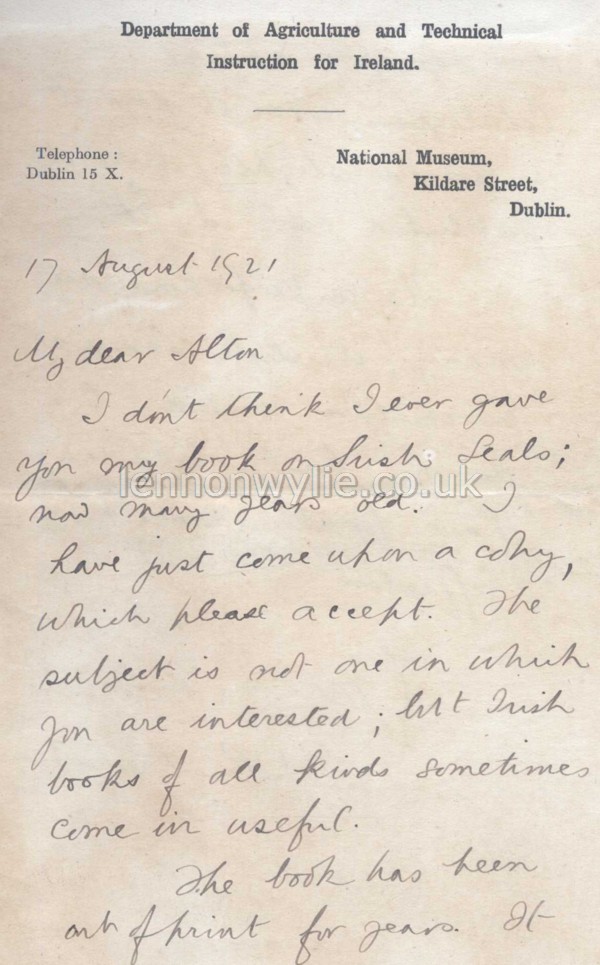 Department of Agriculture and Technical
Instruction for Ireland.
Telephone :
Dublin 15 X.
National Museum,
Kildare Street,
Dublin.
17 August 1921
My dear Alton
I don't think I ever gave
you my book on Irish Seals;
lennonwylie.co.uk
now many years old. I
have just come upon a copy,
which please accept. The
subject is not one in which
you are interested; but Irish
books of all kinds sometimes
come in useful.
The book has been
out of print for years. It